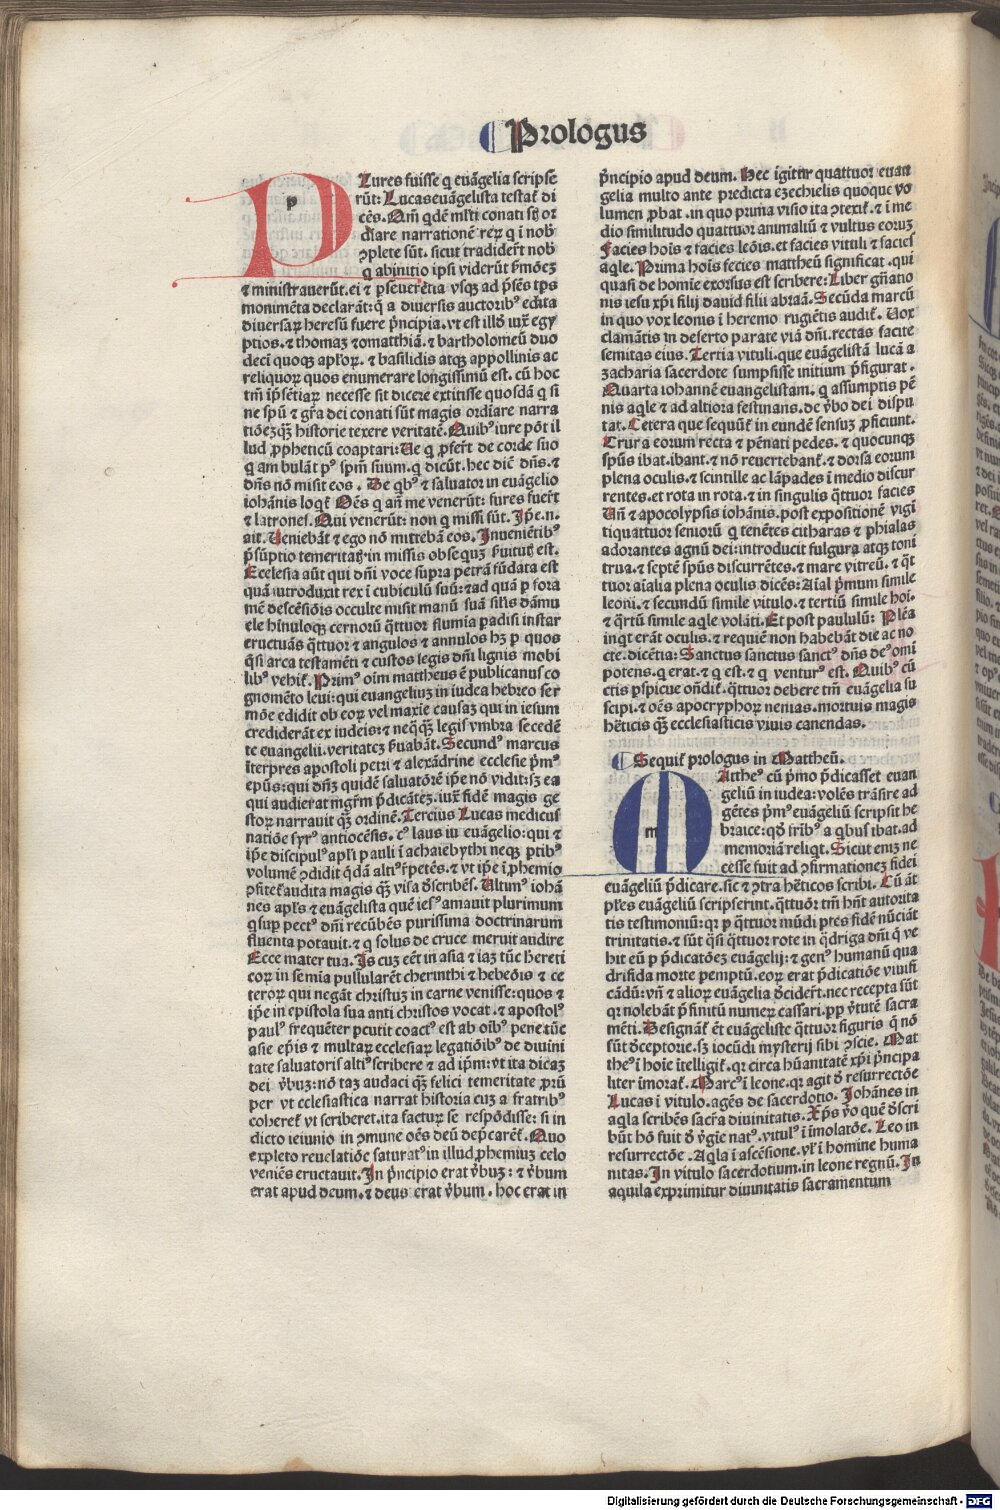 Prologus
PLures fuisse q̄ euāgelia scripse
rūt: Lucas euāgelista testať di
cēs. Qm̄ qdē mľti conati sūt or
dīare narrationē reꝝ q̄ ī nob
ꝯplete sūt. sicut tradiderūt nob
q abinitio ipsi viderūt smōeꝫ
⁊ ministrauerūt. ei ⁊ ꝑseuerētia vsqꝫ ad p̄sēs tps
monimēta declarāt: q̄ a diuersis auctoribꝰ edita
diuersaꝝ heresū fuere p̄ncipia. vt est illď iuꝯ egy
ptios. ⁊ thomaꝫ ⁊ matthiā. ⁊ bartholomeū duo
decī quoqꝫ apľoꝝ. ⁊ basilidis atqꝫ appollinis ac
reliquoꝝ quos enumerare longissimū est. cū hoc
tm̄ ip̄sētiaꝝ necesse sit dicere extitisse quosdā q si
ne spū ⁊ gr̄a dei conati sūt magis ordīare narra
tiōeꝫ qꝫ̄ historie texere veritatē. Quibꝰ iure pōt il
lud ꝓpheticū coaptari: Ue q ꝓferūt de corde suo
q ambulāt pꝰ spm̄ suum. q dicūt. hec dic̄ dn̄s. ⁊
dn̄s nō misit eos. De qbꝰ ⁊ saluator in euāgelio
iohānis loqť Oēs q an̄ me venerūt: fures fuerūt
⁊ latrones. Qui venerūt: non q missi sūt. Ip̄e.n.
ait. Ueniebāt ⁊ ego nō mittebā eos. In veniētibꝰ
p̄sūptio temeritatꝭ. in missis obsequꝫ ẜuitutꝭ est.
Ecclesia aūt qui dn̄i voce supra petrā fūdata est
quā introduxit rex ī cubiculū suū: ⁊ ad quā ꝑ fora
mē descēsiōis occulte misit manū suā siľis dāmu
ele hīnuloqꝫ ceruorū qttuor flumia padisi instar
eructuās qttuor ⁊ angulos ⁊ annulos hꝫ ꝑ quos
qsi arca testamēti ⁊ custos legis dn̄i lignis mobi
libꝰ vehiť. Primꝰ oīm mattheus ē publicanus co
gnomēto leui: qui euangeliuꝫ in iudea hebreo ser
mōe edidit ob eoꝝ vel maxīe causaꝫ qui in iesum
crediderāt ex iudeis: ⁊ neq̄qꝫ̄ legis vmbra secedē
te euangelii. veritateꝫ ẜuabāt. Secundꝰ marcus
īterpres apostoli petri ⁊ alexādrine ecclesie pm̄ꝰ
epūs: qui dn̄ꝫ quidē saluatōrē ip̄e nō vidit: sꝫ ea
qui audierat mgr̄m p̄dicāteꝫ. iuxͣ fidē magis ge
stoꝝ narrauit qꝫ̄ ordinē. Tercius Lucas medicus
natiōe syrꝰ antiocēsis. cꝰ laus iu euāgelio: qui ⁊
ip̄e discipulꝰ apľi pauli ī achaie bythi neqꝫ ꝑtibꝰ
volumē ꝯdidit qdā altiꝰ r̄petēs. ⁊ vt ip̄e ī ꝓhemio
ꝯfiteť audita magis qꝫ̄ visa dscribēs. Ultimꝰ iohā
nes apľs ⁊ euāgelista quē iesꝰ amauit plurimum
q sup pectꝰ dn̄i recūbēs purissima doctrinarum
fluenta potauit. ⁊ q solus de cruce meruit audire
Ecce mater tua. Is cuꝫ eēt in asia ⁊ iaꝫ tūc hereti
coꝝ in semia pullularēt cherinthi ⁊ hebeōis ⁊ ce
teroꝝ qui negāt christuꝫ in carne venisse: quos ⁊
ip̄e in epistola sua anti christos vocat. ⁊ apostolꝰ
paulꝰ frequēter pcutit coactꝰ est ab oībꝰ pene tūc
asie ep̄is ⁊ multaꝝ ecclesiaꝝ legatiōibꝰ de diuini
tate saluatoris altiꝰ scribere ⁊ ad ip̄m: vt ita dicaꝫ
dei v̄buꝫ: nō taꝫ audaci qꝫ̄ felici temeritate ꝓrū
per vt ecclesiastica narrat historia cuꝫ a fratribꝰ
cohereť vt scriberet. ita facturꝫ se respōdisse: si in
dicto ieiunio in ꝯmune oēs deū deꝑcareť. Quo
expleto reuelatiōe saturatꝰ in illud ꝓhemiuꝫ celo
veniēs eructauit. In p̄ncipio erat v̄buꝫ: ⁊ v̄bum
erat apud deum. ⁊ deus erat v̄bum. hoc erat in
p̄ncipio apud deum. Hec igitur quattuor euan
gelia multo ante predicta ezechielis quoque vo
lumen ꝓbat. in quo prima visio ita ꝯtexiť. ⁊ ī me
dio similitudo quattuor animaliū ⁊ vultus eoruꝫ
Facies hoīs ⁊ facies leōis. et facies vituli ⁊ facies
aqle. Prima hoīs fecies mattheū significat. qui
quasi de homīe exorsus est scribere: Liber gn̄atio
nis iesu xp̄i filij dauid filii abraā. Secūda marcū
in quo vox leonis ī heremo rugiētis audiť. Uox
clamātis in deserto parate viā dn̄i. rectas facite
semitas eius. Tertia vituli. que euāgelistā lucā a
zacharia sacerdote sumpsisse initium p̄figurat.
Quarta iohannē euangelistam. q assumptis pē
nis aqle ⁊ ad altiora festinans. de v̄bo dei dispu
tat. Cetera que sequūť in eundē sensuꝫ ꝓficiunt.
Crura eorum recta ⁊ pēnati pedes. ⁊ quocunqꝫ
spūs ibat. ibant. ⁊ nō reuertebanť. ⁊ dorsa eorum
plena oculis. ⁊ scintille ac lāpades ī medio discur
rentes. et rota in rota. ⁊ in singulis qttuor facies
Un̄ ⁊ apocolypsis iohānis. post expositionē vigī
tiquattuor seniorū q tenētes citharas ⁊ phialas
adorantes agnū dei: introducit fulgura atqꝫ toni
trua. ⁊ septē spūs discurrētes. ⁊ mare vitreū. ⁊ qt
tuor aīalia plena oculis dicēs: Aīal p̄mum simile
leoni. ⁊ secundū simile vitulo. ⁊ tertiū simile hoī.
⁊ q̄rtū simile aqle volāti. Et post paululū: Plēa
inqt erāt oculis. ⁊ requiē non habebāt die ac no
cte. dicētia: Sanctus sanctus sanctꝰ dn̄s deꝰ omī
potens. q erat. ⁊ q est. ⁊ q venturꝰ est. Quibꝰ cū
ctis ꝑspicue on̄diť. qttuor debere tm̄ euāgelia su
scipi. ⁊ oēs apocryphoꝝ nenias. mortuis magis
hēticis qꝫ̄ ecclesiasticis viuis canendas.
Sequiť prologus in Mattheū.
MAttheꝰ cū p̄mo p̄dicasset euan
geliū in iudea: volēs trāsire ad
gētes pm̄ꝰ euāgeliū scripsit he
braice: qd̄ frībꝰ a qbus ibat. ad
memoriā reliqt. Sicut eniꝫ ne
cesse fuit ad ꝯfirmationeꝫ fidei
euāgeliū p̄dicare. sic ⁊ ꝯtra hēticos scribi. Cū āt
plͬes euāgeliū scripserint. qttuor tm̄ hn̄t autorita
tis testimoniū: qꝛ ꝑ qttuor mūdi ptes fidē nūciāt
trinitatis. ⁊ sūt qsi qttuor rote in qdriga dn̄i q̄ ve
hit eū ꝑ p̄dicatōeꝫ euāgelij: ⁊ genꝰ humanū qua
drifida morte pemptū. eoꝝ erat p̄dicatiōe viuifi
cādū: vn̄ ⁊ alioꝝ euāgelia dciderūt. nec recepta sūt
qꝛ nolebāt p̄finitū numeꝝ cassari. ꝓp ṽtutē sacra
mēti. Designāť ēt euāgeliste qttuor figuris q̄ nō
sūt dceptorie. sꝫ iocūdi mysterij sibi ꝯscie. Mat
theꝰ ī hoīe ītelligiť. qꝛ circa hūanitatē xp̄i p̄ncipa
liter īmorať. Marcꝰ ī leone. qꝛ agit d̄ resurrectōe
Lucas ī vitulo. agēs de sacerdotio. Johānes in
aqla scribēs sacra diuinitatis. Xp̄s v̄o quē dscri
būt hō fuit d̄ v̄gīe natꝰ. vitulꝰ ī īmolatōe. Leo in
resurrectōe. Aqla ī ascēsione. vľ ī homine huma
nitas. In vitulo sacerdotium. in leone regnū. In
aquila exprimitur diuinitatis sacramentum
Digitalisierung gefördert durch die Deutsche Forschungsgemeinschaft - DFG